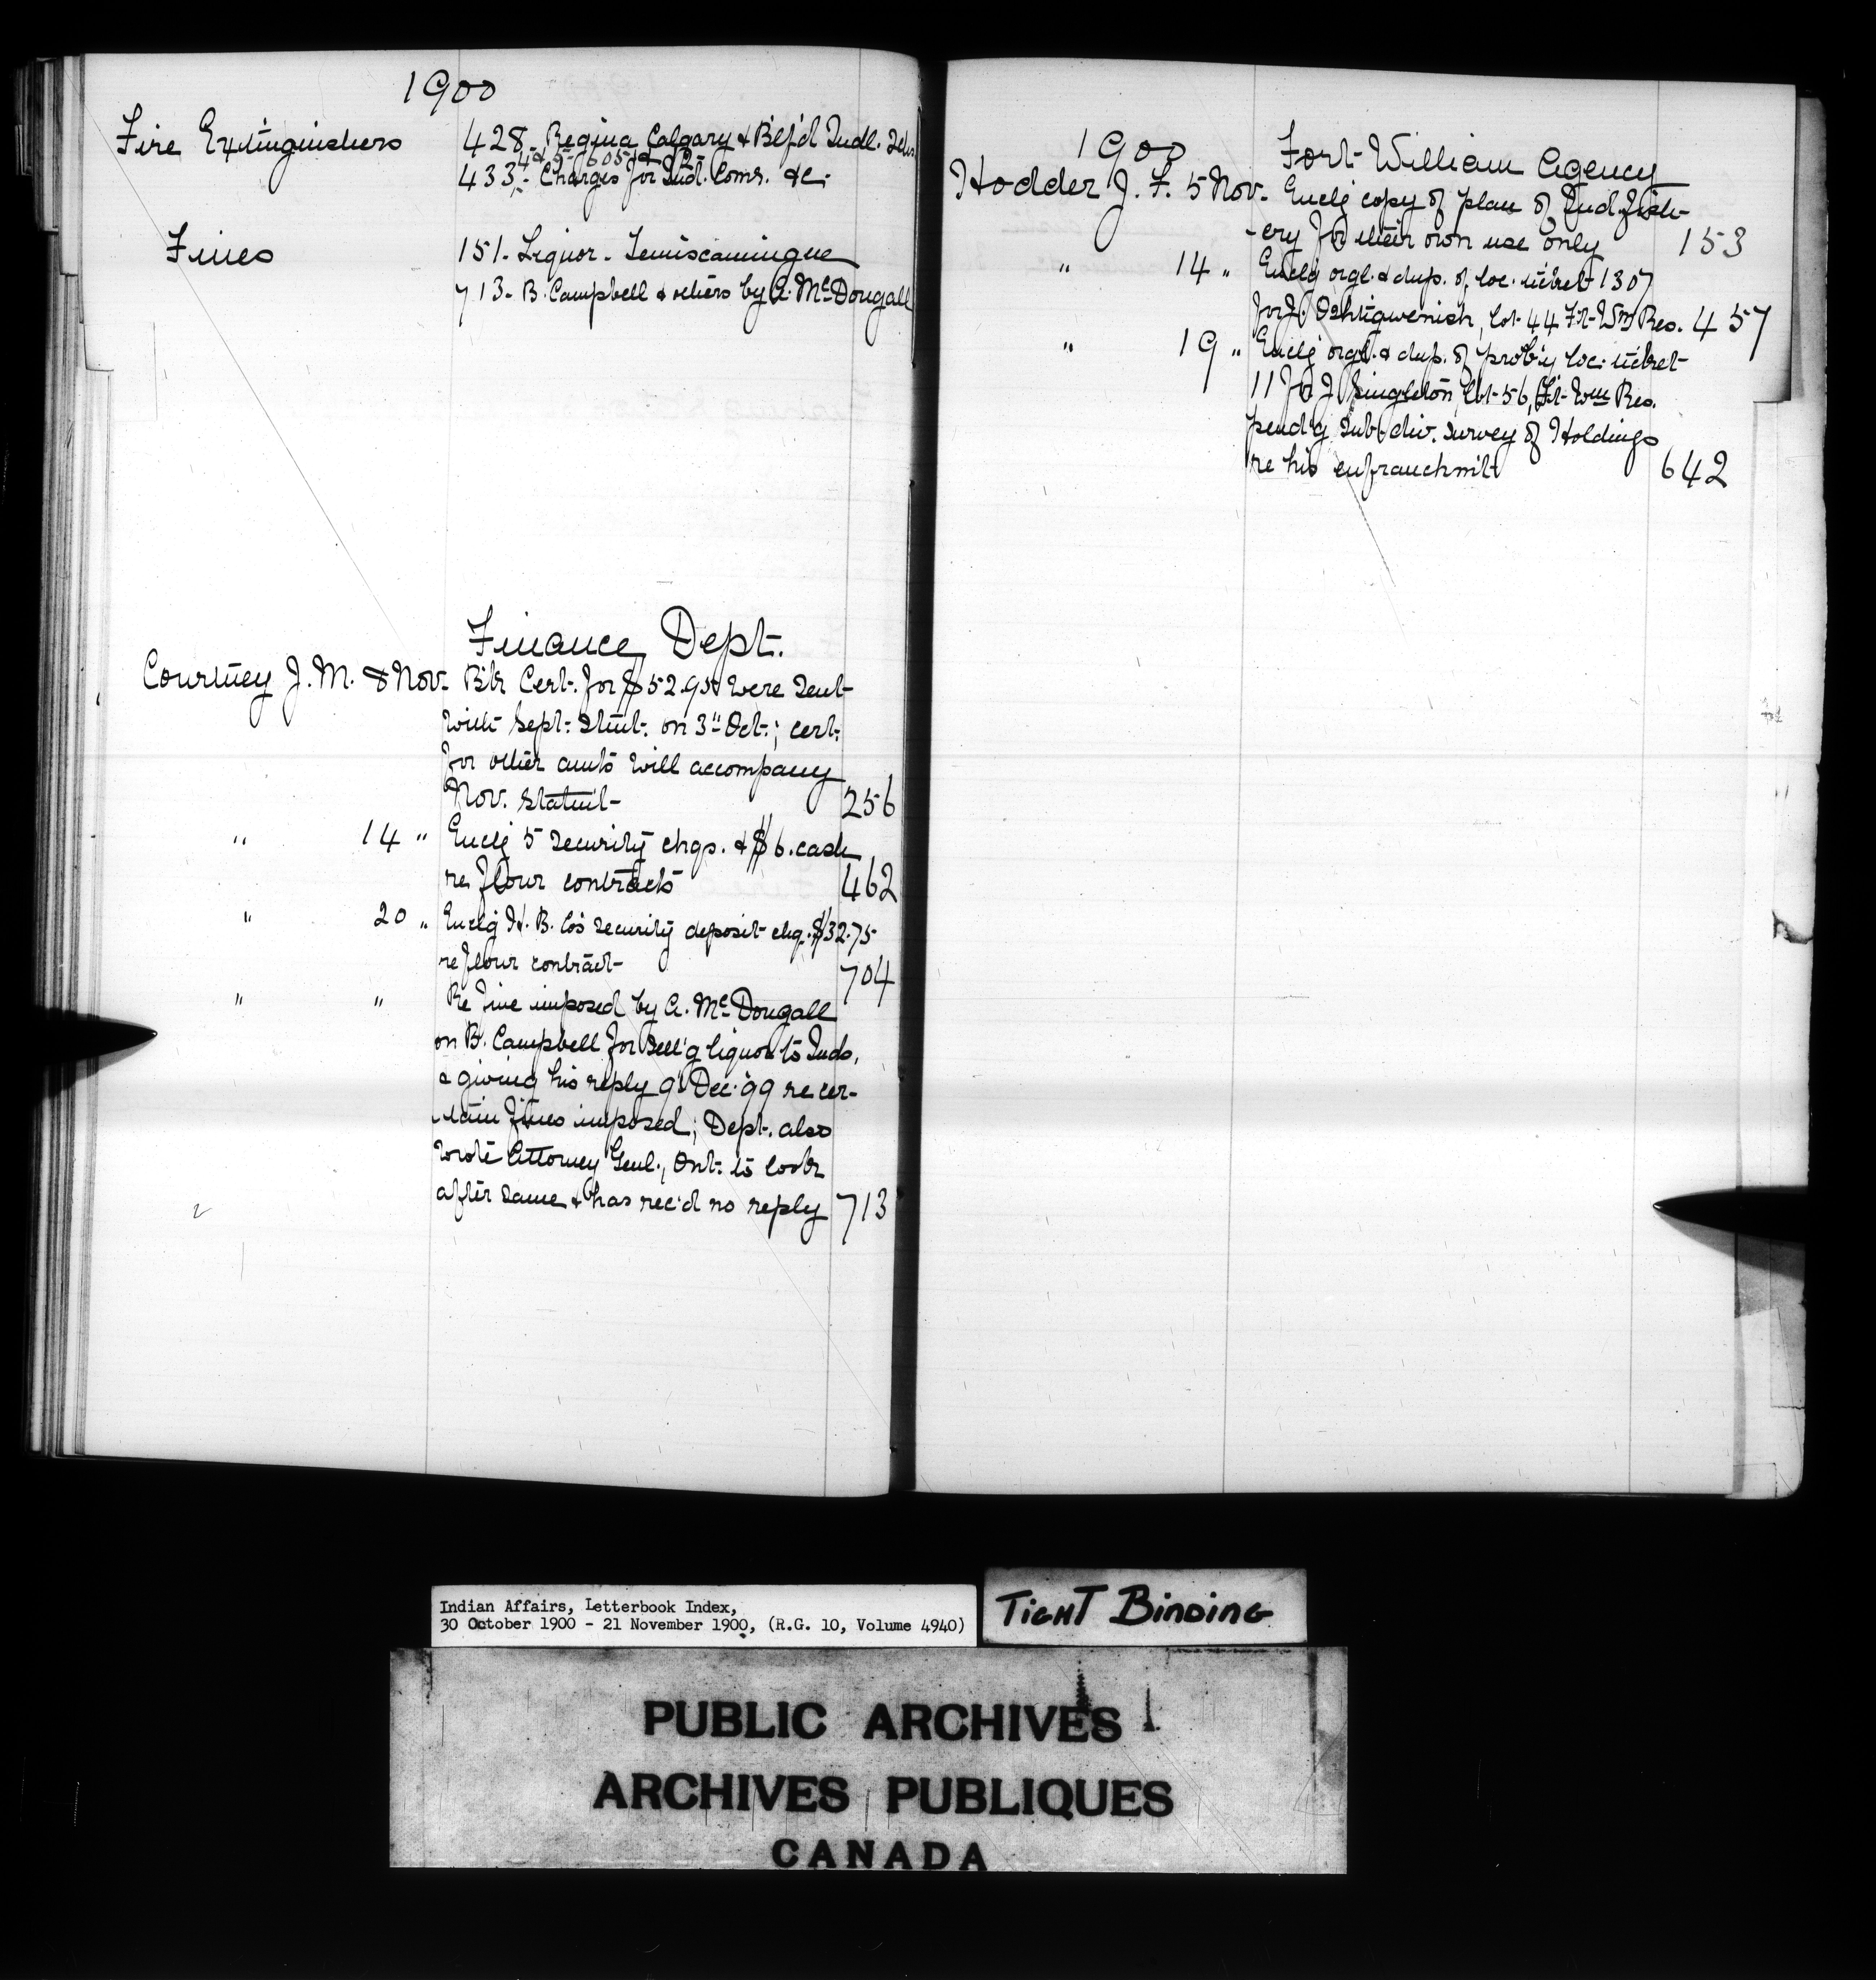 1900
Fire Extinguishers 428, Regina Calgary & B'lf'd Indl. Schs
4 & 5 - 605 &
433 - Charges for Ind. Comr. &c.
Fines 151 - Liquor - Temiscamingue
713 - B. Campbell & others by A. McDougall
Finance Dept.
Courtney J. M. 8 Nov. Bk Cert. for $52.95 were sent
with Sept. Stmt. on 3" Oct.; cert.
for other amts will accompany
Nov. Statmt 256
" 14 " Enclg 5 security chqs. & $6. cash
re flour contracts 462
" 20 " Enclg H. B. Co's security deposit chq. $32.75
re flour contract 704
" " Re fine imposed by A. McDougall
on B. Campbell for sell'g liquor to Inds,
& giving his reply 9 Dec. '99 re cer-
-tain fines imposed; Dept. also
wrote Attorney Genl., Ont. to look
after same & has rec'd no reply 713
1900 Fort William Agency
Hodder J. F. 5 Nov. Enclg copy of plan of Ind. fish-
-ery for their own use only 153
" 14 " Enclg orgl. & dup. of loc. ticket 1307
for J. lot 44 Ft. Wm Res. 457
" 19 " Enclg orgl. & dup. of prob'y loc. ticket
11 for J. Singleton, lot 56, Ft. Wm Res.
pend'g sub.div. survey of Holdings
re his enfranchmt 642
Indian Affairs, Letterbook Index,
30 October 1900 - 21 November 1900, (R.G. 10, Volume 4940)
TIGHT BINDING
PUBLIC ARCHIVES
ARCHIVES PUBLIQUES
CANADA